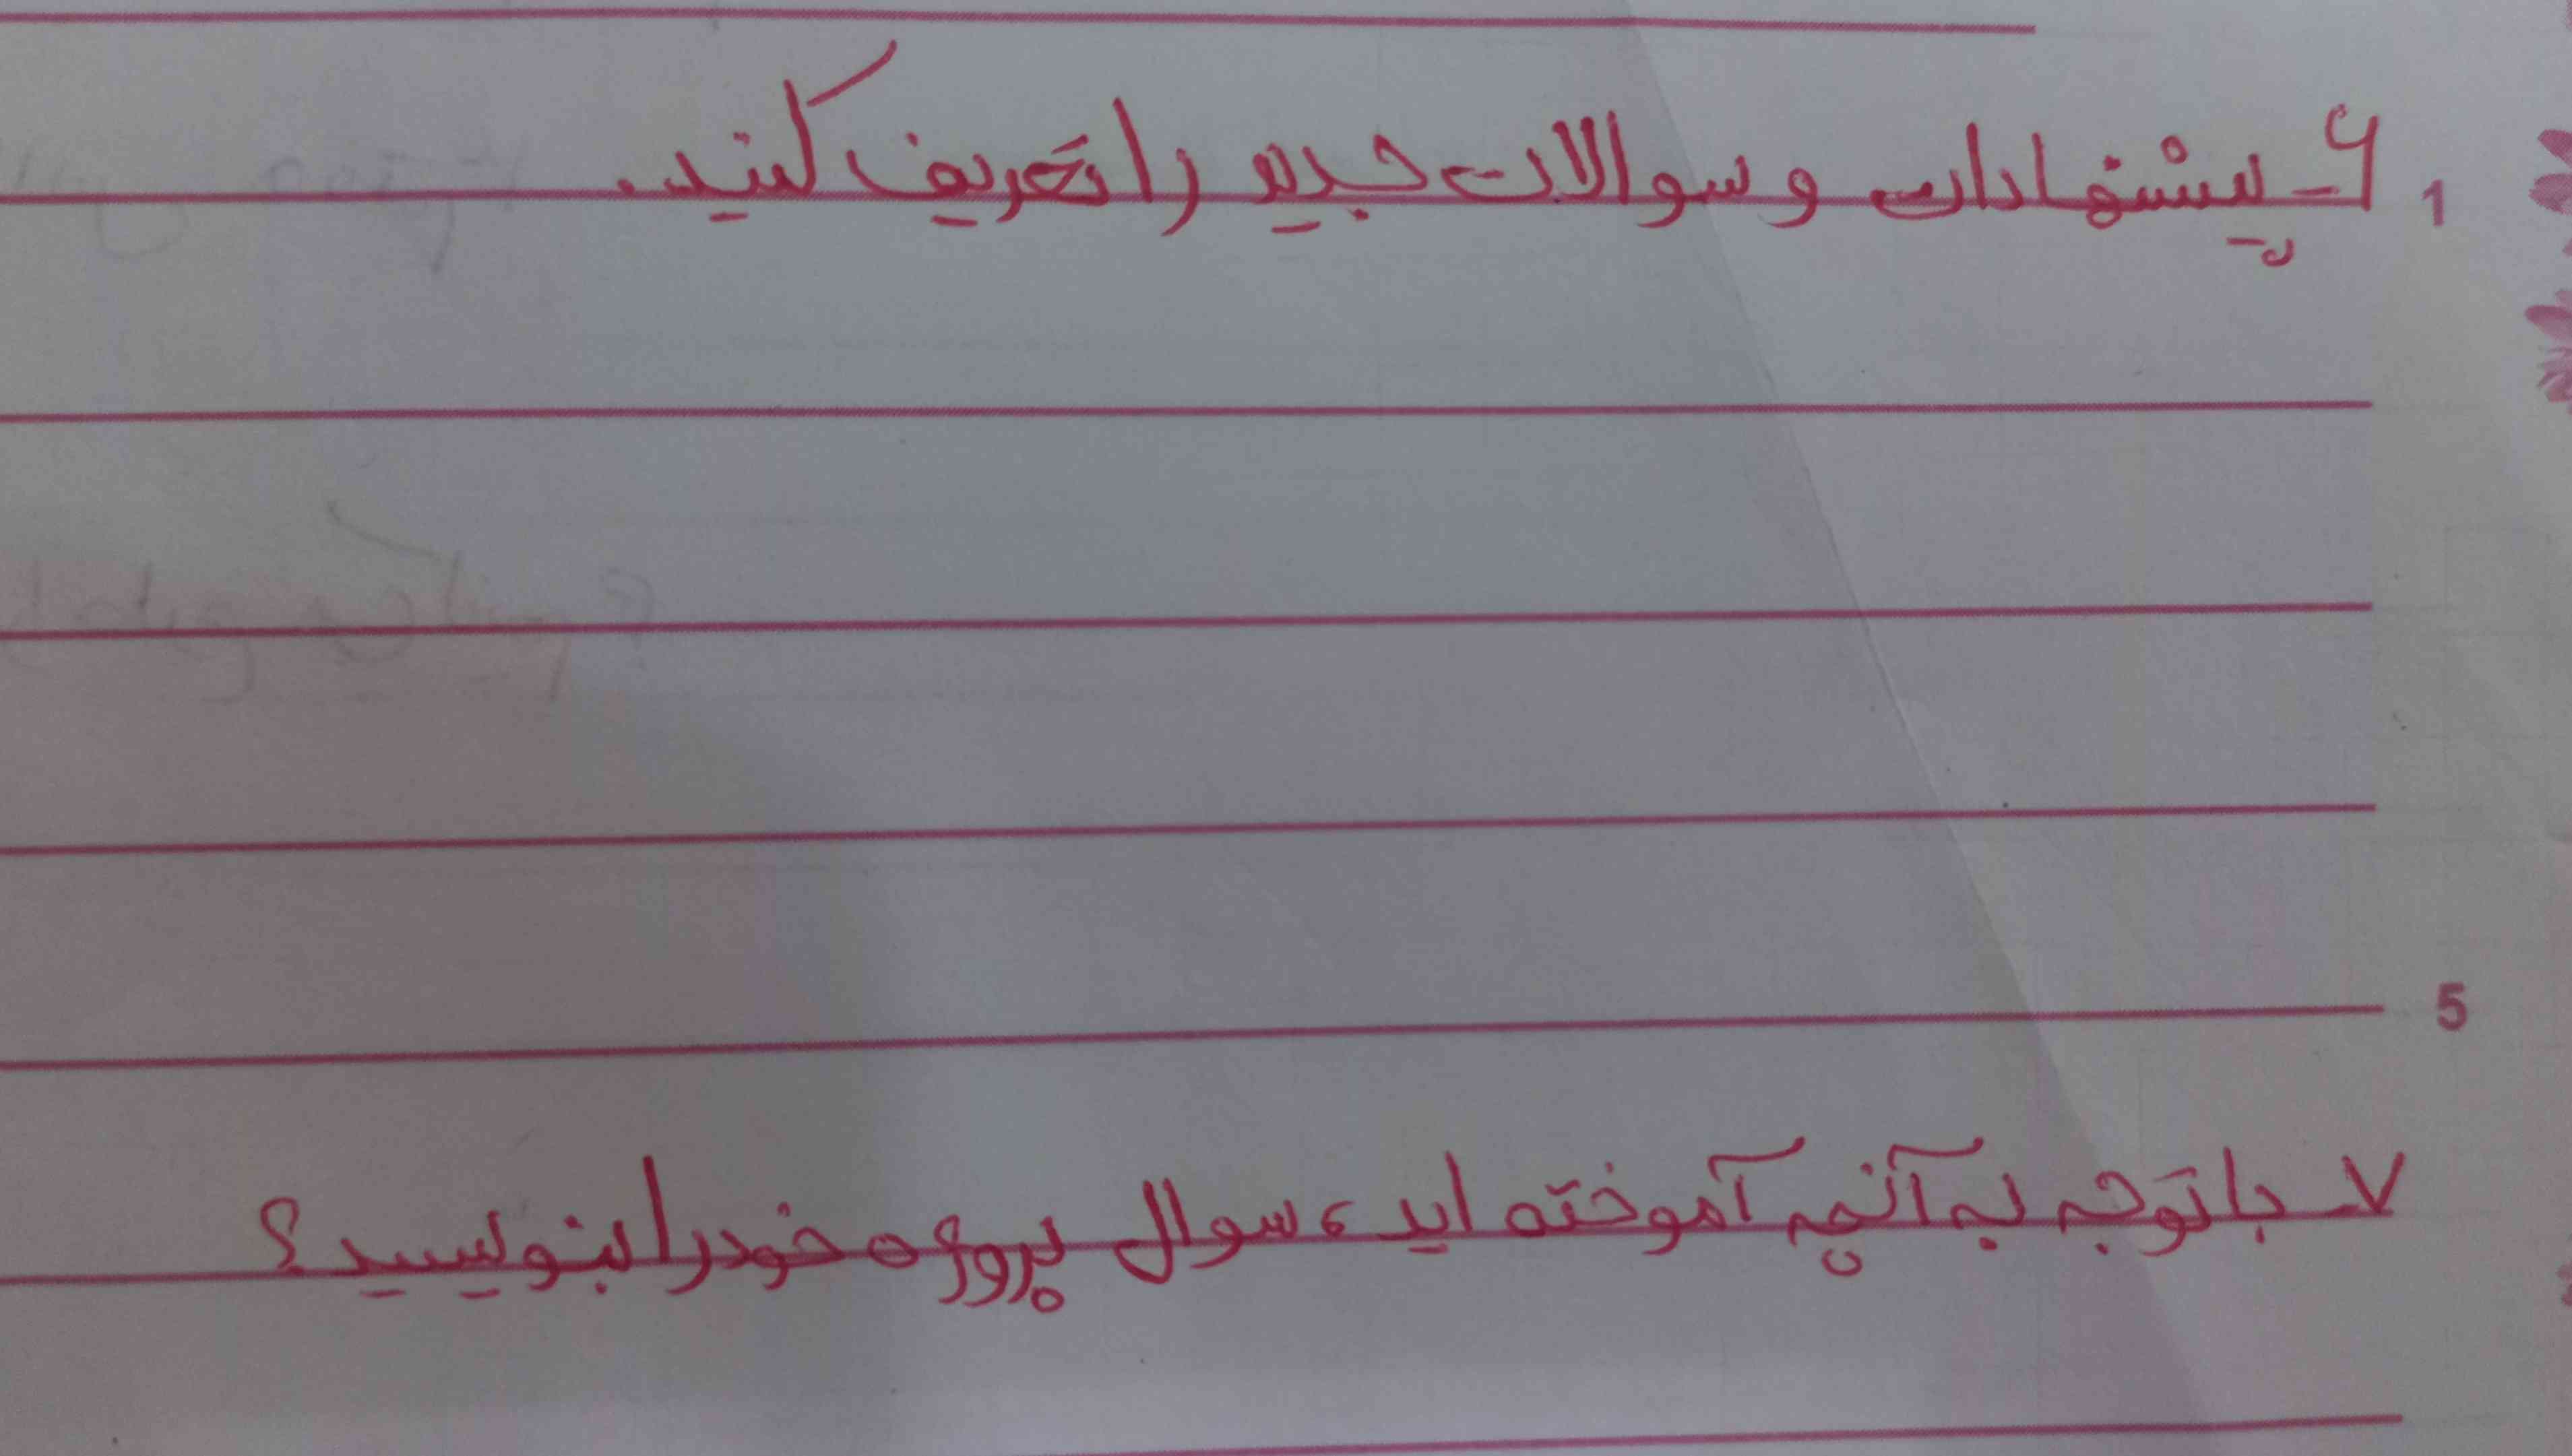 ۶_ پیشنهادات و سوالات جدید را تعریف کنید.
1
5
۷_ با توجه به آنچه آموخته اید، سوال پروژه خود را بنویسید؟